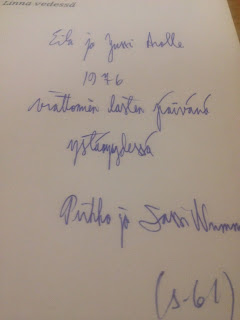 Linna vedessä
Eila ja Jussi Aralle
1976
viattomien lasten päivänä
ystävyydessä
Pirkko ja Lassi Numm
(s-61)